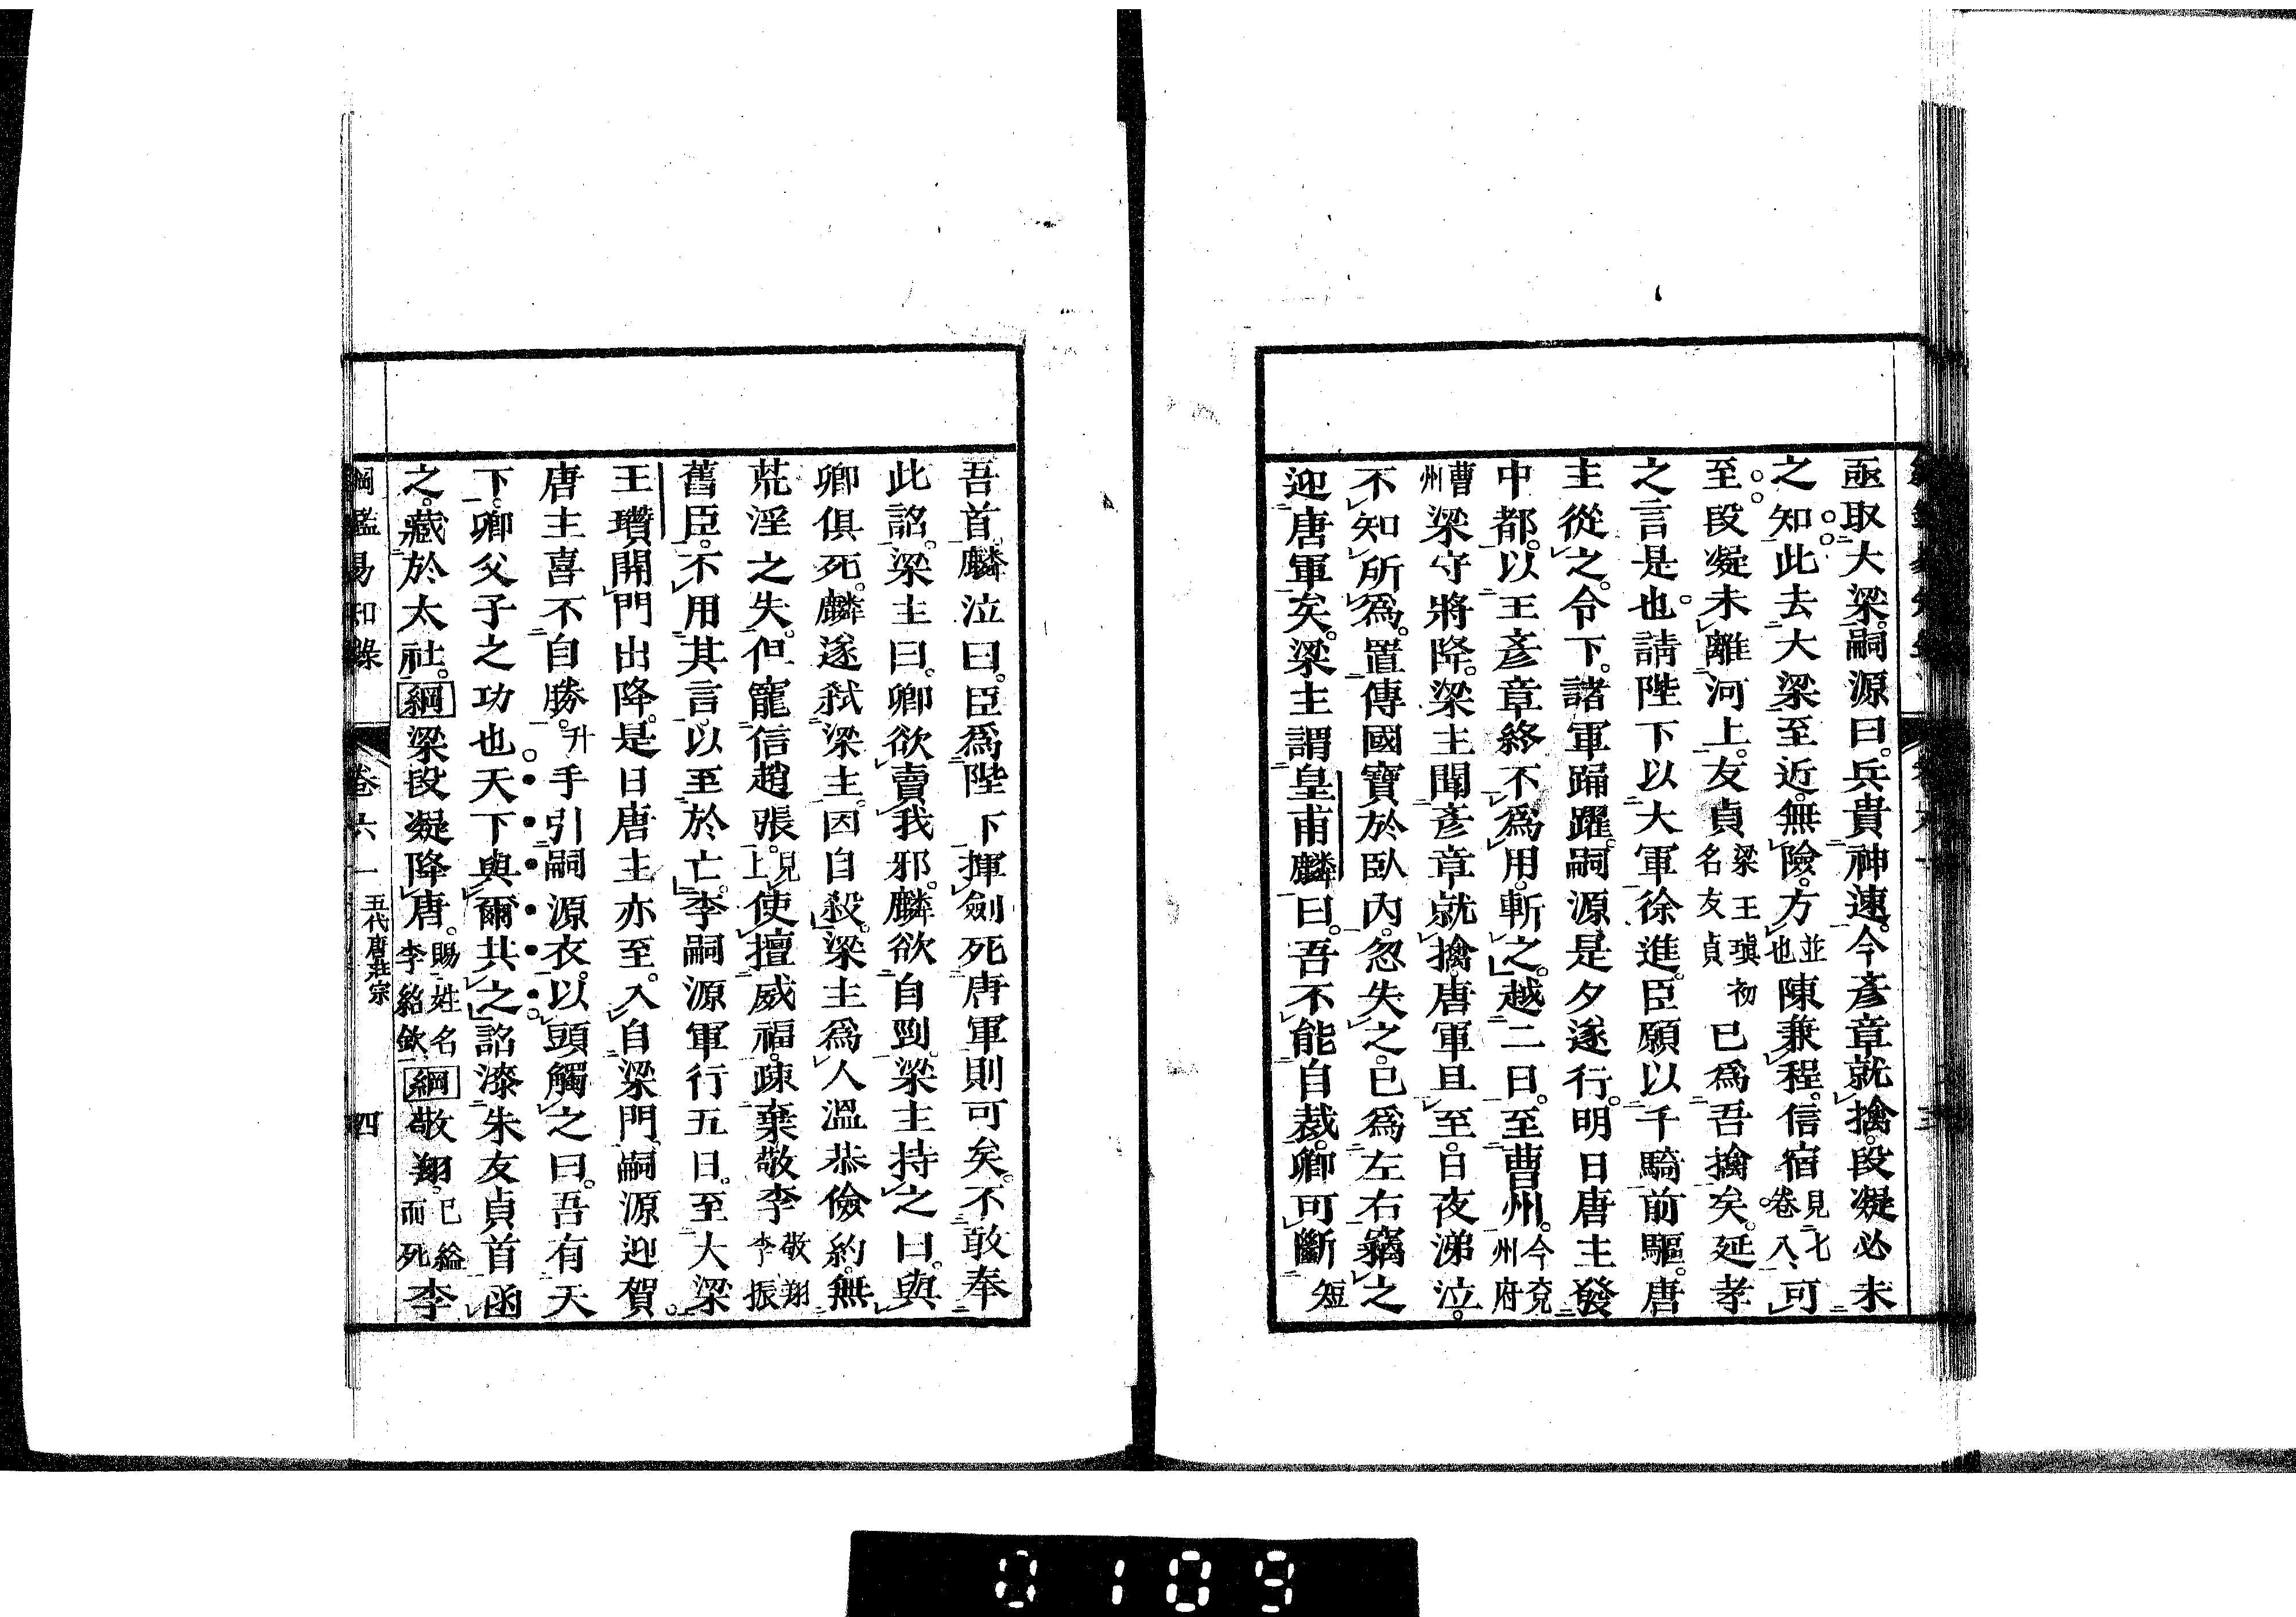 亟取大梁。嗣源曰。兵貴神速。今彥章就擒。段凝必未
之知。此去大梁至近。無險。方並也陳兼程。信宿見七卷八、可
至。段凝未離河上。友貞梁王瑱初名友貞已爲吾擒矣。延孝
之言是也。請陛下以大軍徐進。臣願以千騎前驅。唐
主從之。令下。諸軍踊躍。嗣源是夕遂行。明日唐主發
中都。以王彥章終不爲用。斬之。越二日。至曹州。今兗州府
曹州梁守將降。梁主聞彥章就擒。唐軍且至。日夜涕泣。
不知所爲。置傳國寶於臥內。忽失之。已爲左右竊之
迎唐軍矣。梁主謂皇甫麟曰。吾不能自裁。卿可斷短
吾首。麟泣曰。臣爲陛下揮劍死唐軍則可矣。不敢奉
此詔。梁主曰。卿欲賣我邪。麟欲自剄。梁主持之曰。與
卿俱死。麟遂弒梁主。因自殺。梁主爲人溫恭儉約。無
荒淫之失。但寵信趙張。見上使擅威福。疎棄敬李敬翔李振
舊臣。不用其言。以至於亡。李嗣源軍行五日。至大梁。
王瓚開門出降。是日唐主亦至。入自梁門。嗣源迎賀。
唐主喜不自勝。升手引嗣源衣。以頭觸之曰。吾有天
下。卿父子之功也。天下與爾共之。詔漆朱友貞首函
之。藏於太社。綱梁段凝降唐。賜姓名李紹欽綱敬翔。已縊而死李
綱鑑易知錄 卷六一 五代唐莊宗 四